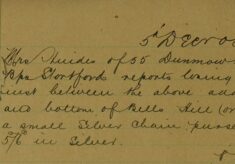 5th Decr 0
Mrs Guides of 50 Dunmow
Bps Stortford reports losing
just between the above add
and bottom of Bells Hill (or
a small Silver Chain purse
5/6 in Silver.